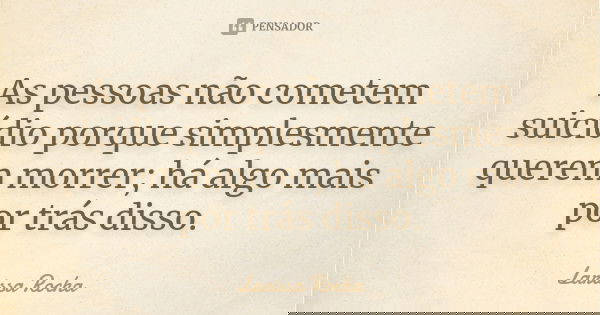 PENSADOR
As pessoas não cometem
suicídio porque simplesmente
querem morrer; há algo mais
por trás disso.
Larissa Rocha